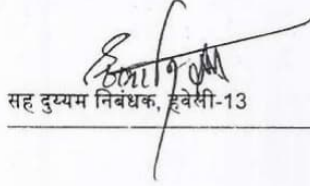 सह दुय्यम निबंधक, हवेली-13